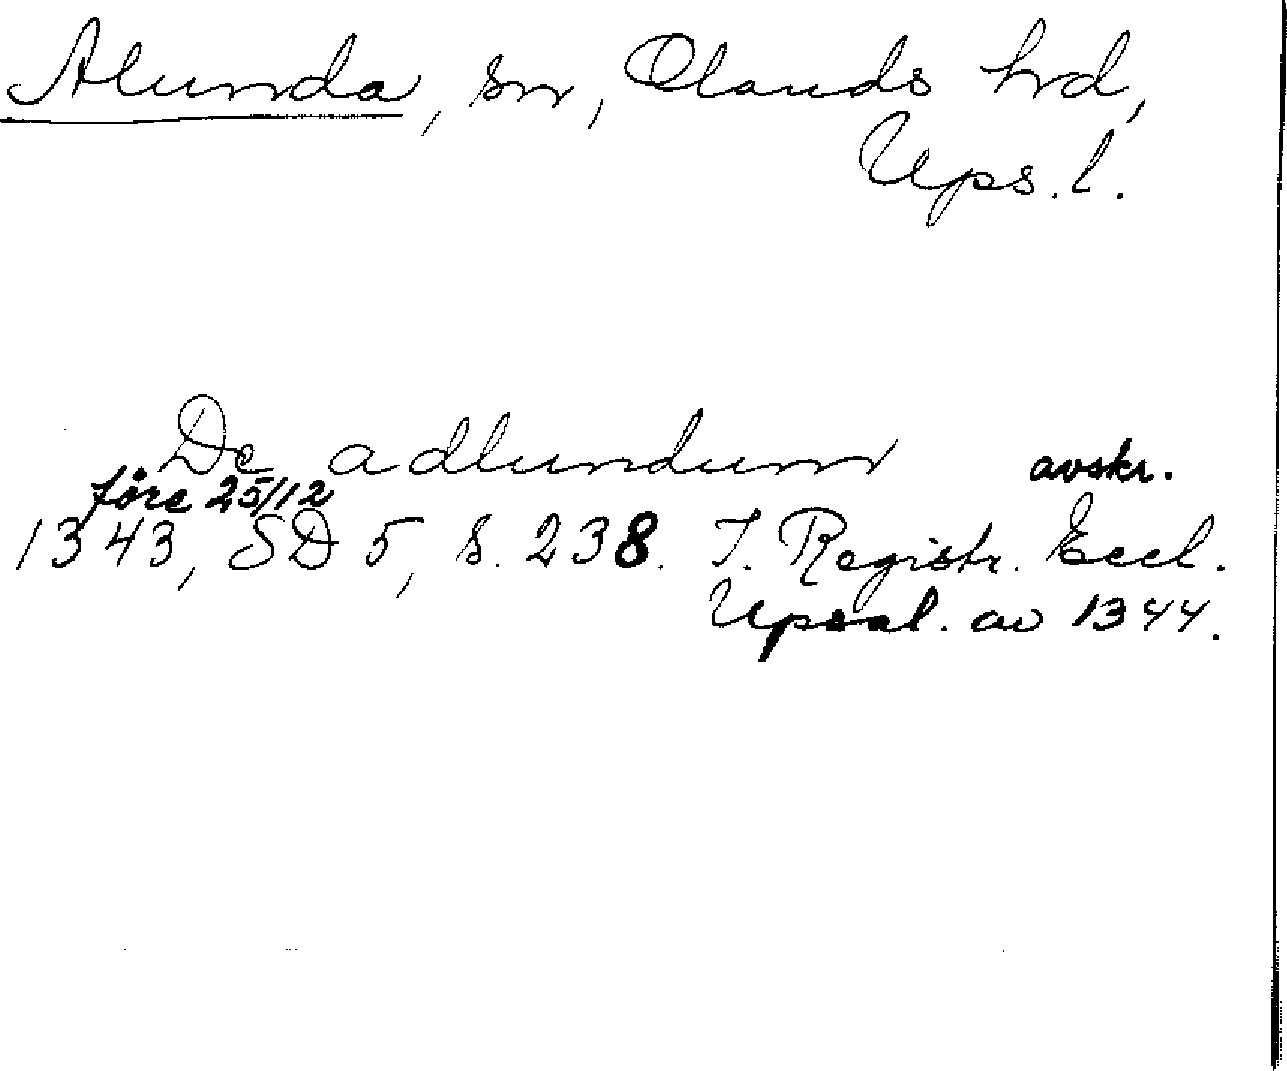 Alunda, sn, Olands hrd,
Ups. l.
De adlundum avskr.
före 25/12
1343, SD 5, s. 238. I. Registr. Eccl.
Upsal. av 1344.